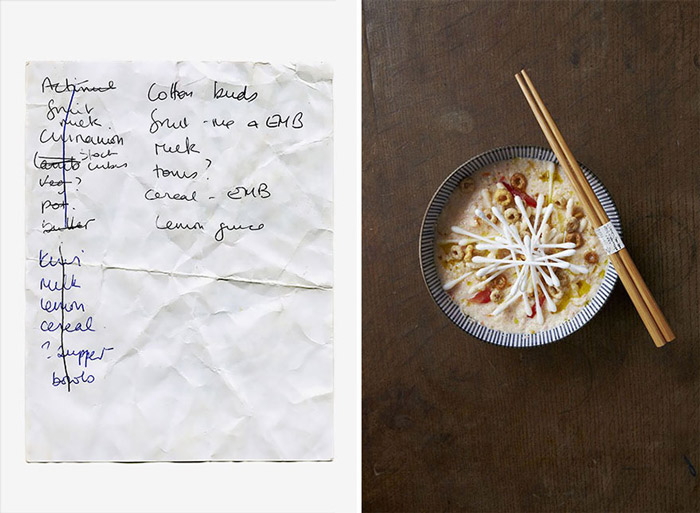 Actimel
fruit
milk
cinnamon
stock
cubes
veg?
pot.
butter
kiwi
milk
lemon
cereal
? supper
Cotton buds
fruit - me + EMB
milk
toms?
cereal - EMB
Lemon juice